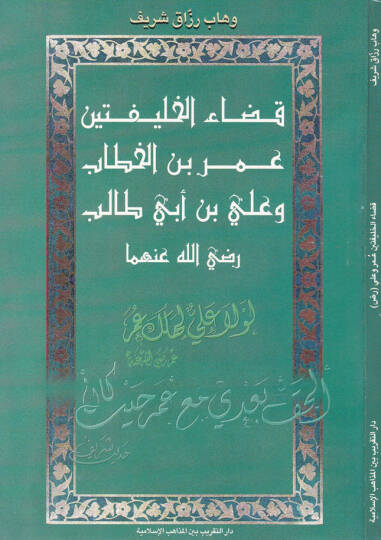 وهاب رزّاق شريف
قضاء الخليفتين
عمر بن الخطاب
وعلي بن أبي طالب
رضي الله عنهما
لولا علي لهلك عمر
الحق بعدي مع عمر حيث كان
حديث شريف
دار التقريب بين المذاهب الإسلامية
وهاب رزّاق شريف
قضاء الخليفتين عُمر وعلي (رض)
دار التقريب بين المذاهب الإسلامية